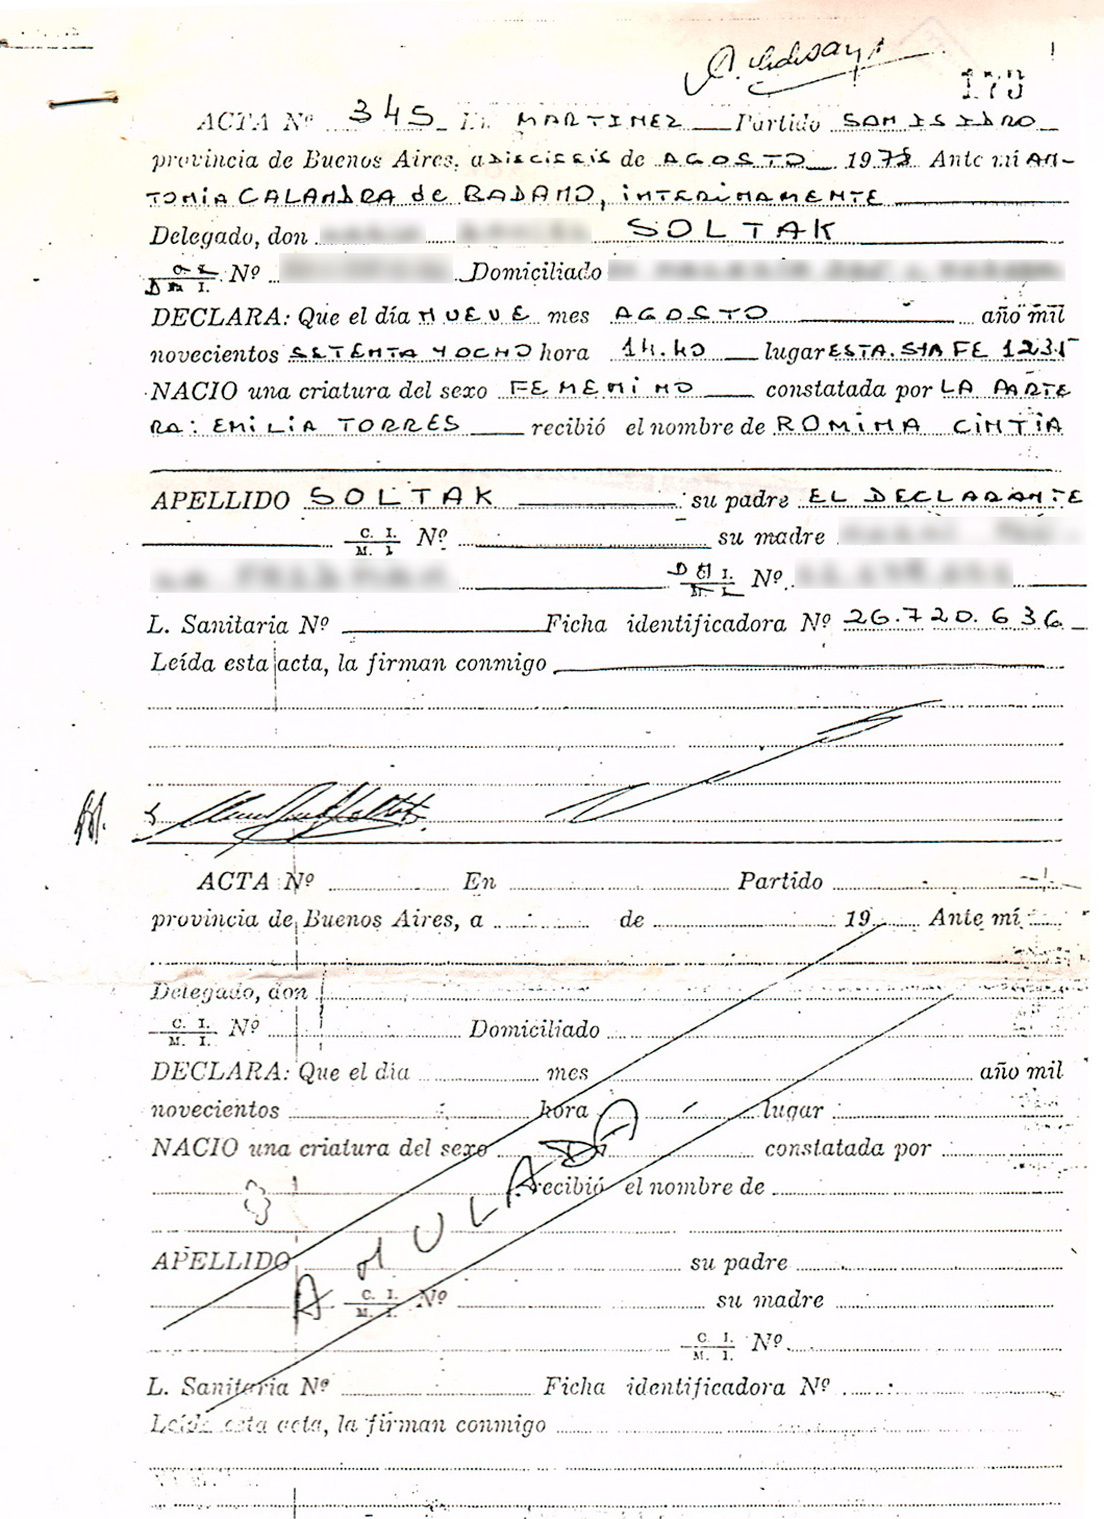 173
ACTA Nº 345 En MARTINEZ Partido SAN ISIDRO
provincia de Buenos Aires, a DIECISEIS de AGOSTO 1978 Ante mí AN-
TONIA CALANDRA de BADANO, INTERINAMENTE
Delegado, don SOLTAK
D N I. Nº Domiciliado
DECLARA: Que el día NUEVE mes AGOSTO año mil
novecientos SETENTA Y OCHO hora 14.40 lugar ESTA. STA FE 1235
NACIO una criatura del sexo FEMENINO constatada por LA PARTE
RA: EMILIA TORRES recibió el nombre de ROMINA CINTIA
APELLIDO SOLTAK su padre EL DECLARANTE
C. I. M. I Nº su madre
D N I. Nº
L. Sanitaria Nº Ficha identificadora Nº 26.720.636
Leída esta acta, la firman conmigo
ACTA Nº En Partido
provincia de Buenos Aires, a de 19 Ante mí
Delegado, don
C. I. M. I. Nº Domiciliado
DECLARA: Que el día mes año mil
novecientos hora lugar
NACIO una criatura del sexo constatada por
recibió el nombre de
ANULADA
APELLIDO su padre
C. I. M. I. Nº su madre
C. I. M. I. Nº
L. Sanitaria Nº Ficha identificadora Nº
Leída esta acta, la firman conmigo